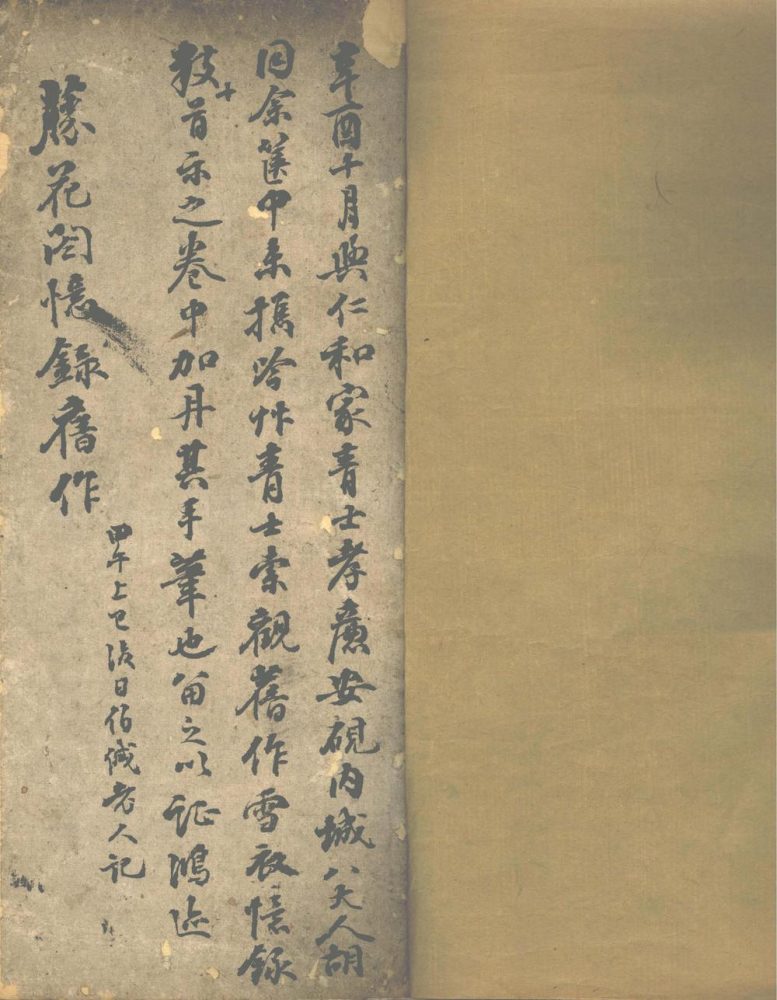 辛酉十月與仁和家青士孝廉安硯內城八天人胡
同余篋中未攜吟艸青士索觀舊作雪衣憶錄
数十首示之卷中加丹其手筆也留之以證鴻迹
藤花閣憶錄舊作
甲午上巳後日佰緘老人記